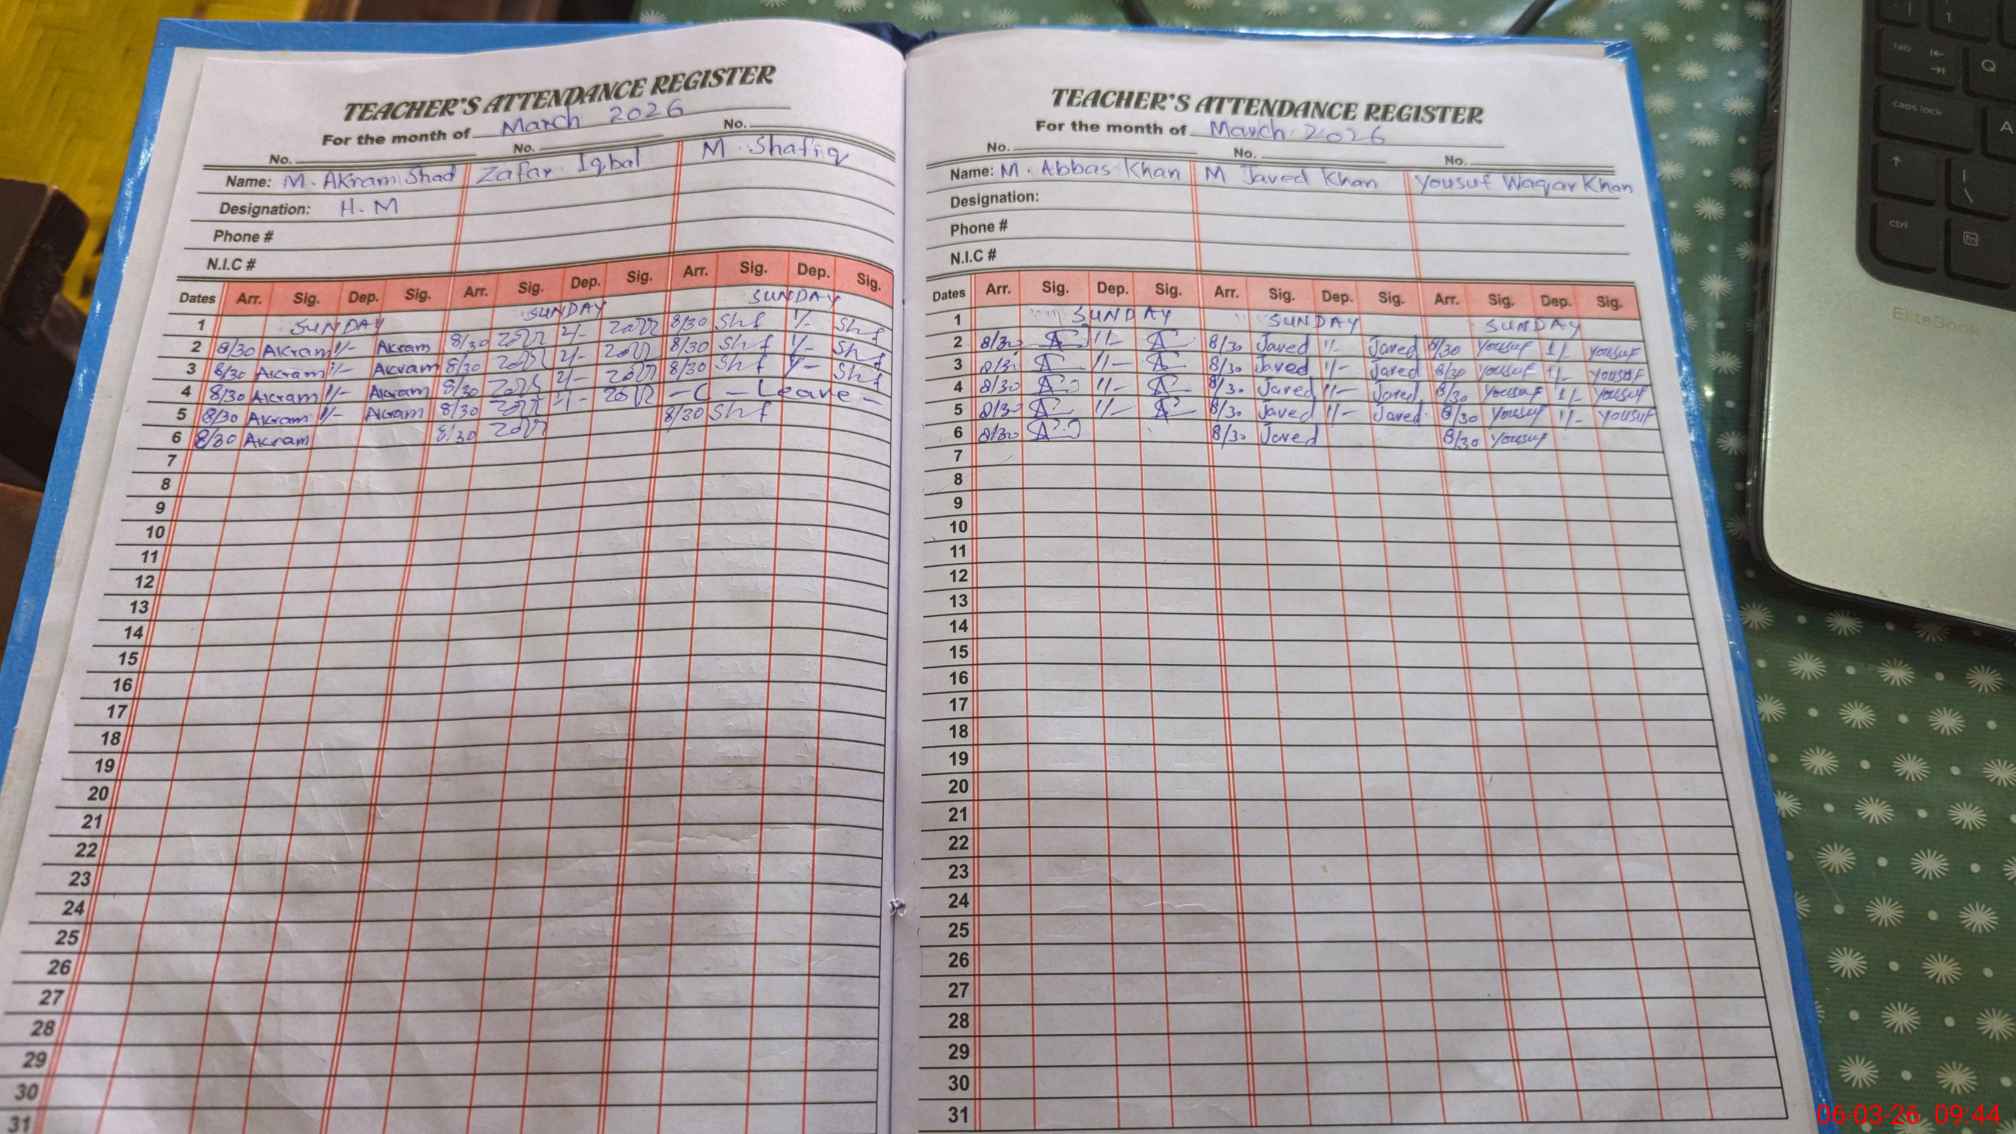 TEACHER'S ATTENDANCE REGISTER
For the month of March 2026
No. No. No.
Name: M. Akram Shad Zafar Iqbal M. Shafiq
Designation: H.M
Phone #
N.I.C #
Dates Arr. Sig. Dep. Sig. Arr. Sig. Dep. Sig. Arr. Sig. Dep. Sig.
1 SUNDAY SUNDAY SUNDAY
2 8/30 Akram 1/- Akram 8/30 1/- 8/30 Shf 1/- Shf
3 8/30 Akram 1/- Akram 8/30 1/- 8/30 Shf 1/- Shf
4 8/30 Akram 1/- Akram 8/30 1/- - C - Leave -
5 8/30 Akram 1/- Akram 8/30 1/- 8/30 Shf
6 8/30 Akram 8/30
7
8
9
10
11
12
13
14
15
16
17
18
19
20
21
22
23
24
25
26
27
28
29
30
31
TEACHER'S ATTENDANCE REGISTER
For the month of March 2026
No. No. No.
Name: M. Abbas Khan M Javed Khan Yousuf Waqar Khan
Designation:
Phone #
N.I.C #
Dates Arr. Sig. Dep. Sig. Arr. Sig. Dep. Sig. Arr. Sig. Dep. Sig.
1 SUNDAY SUNDAY SUNDAY
2 8/30 1/- 8/30 Javed 1/- Javed 8/30 Yousuf 1/- Yousuf
3 8/30 1/- 8/30 Javed 1/- Javed 8/30 Yousuf 1/- Yousuf
4 8/30 1/- 8/30 Javed 1/- Javed 8/30 Yousuf 1/- Yousuf
5 8/30 1/- 8/30 Javed 1/- Javed 8/30 Yousuf 1/- Yousuf
6 8/30 8/30 Javed 8/30 Yousuf
7
8
9
10
11
12
13
14
15
16
17
18
19
20
21
22
23
24
25
26
27
28
29
30
31
caps lock
ctrl
fn
EliteBook
06-03-26 09:44